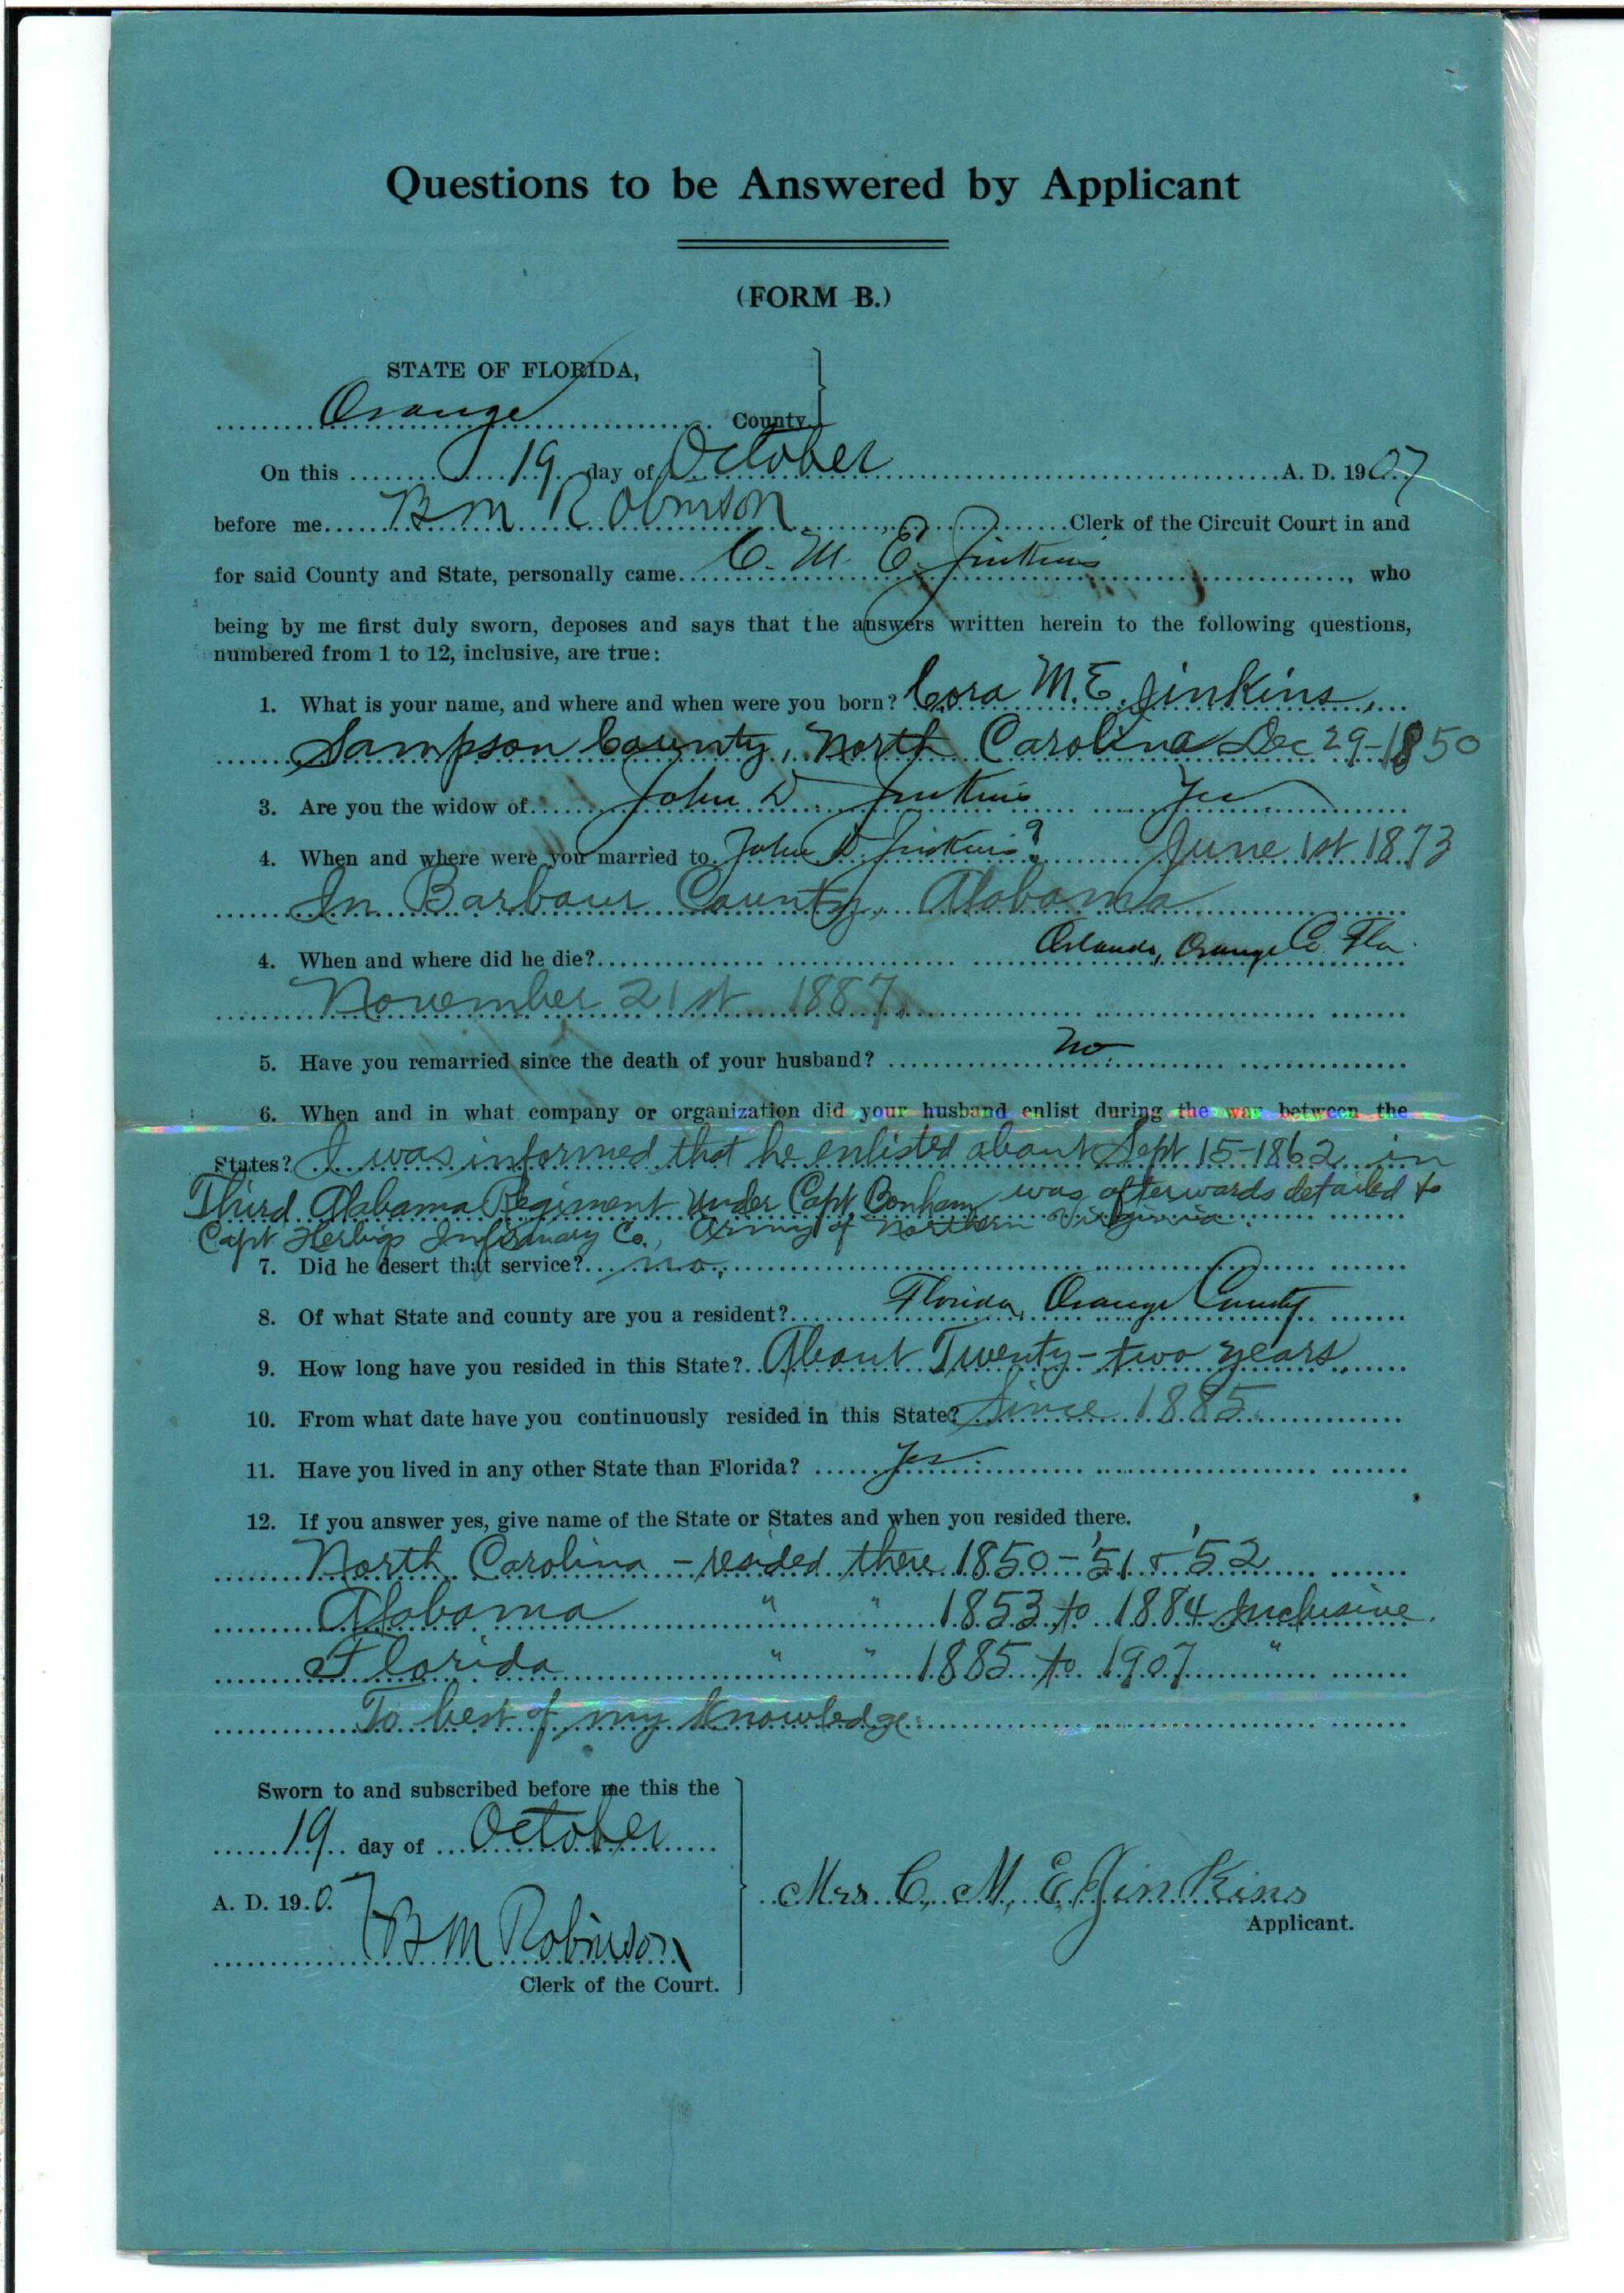 Questions to be Answered by Applicant
(FORM B.)
STATE OF FLORIDA,
Orange County.
On this 19 day of October A. D. 1907
before me B M Robinson Clerk of the Circuit Court in and
for said County and State, personally came C. M. E. Jinkins, who
being by me first duly sworn, deposes and says that the answers written herein to the following questions,
numbered from 1 to 12, inclusive, are true:
1. What is your name, and where and when were you born? Cora M. E. Jinkins,
Sampson County, North Carolina Dec 29-1850
3. Are you the widow of John D. Jinkins Yes
4. When and where were you married to John D. Jinkins? June 1st 1873
In Barbour County, Alabama
4. When and where did he die? Orlando, Orange Co. Fla.
November 21st 1887,
5. Have you remarried since the death of your husband? No.
6. When and in what company or organization did your husband enlist during the war between the
States? I was informed that he enlisted about Sept 15-1862 in
Third Alabama Regiment under Capt. Bonham was afterwards detailed to
Capt Infirmary Co., Army of Northern Virginia.
7. Did he desert that service? no,
8. Of what State and county are you a resident? Florida, Orange County
9. How long have you resided in this State? About Twenty-two years,
10. From what date have you continuously resided in this State? Since 1885
11. Have you lived in any other State than Florida? Yes
12. If you answer yes, give name of the State or States and when you resided there.
North Carolina - resided there 1850-'51 & '52
Alabama " " 1853 to 1884 Inclusive.
Florida " " 1885 to 1907 "
To best of my knowledge
Sworn to and subscribed before me this the
19 day of October
A. D. 1907
B M Robinson
Clerk of the Court.
Mrs. C. M. E. Jinkins
Applicant.